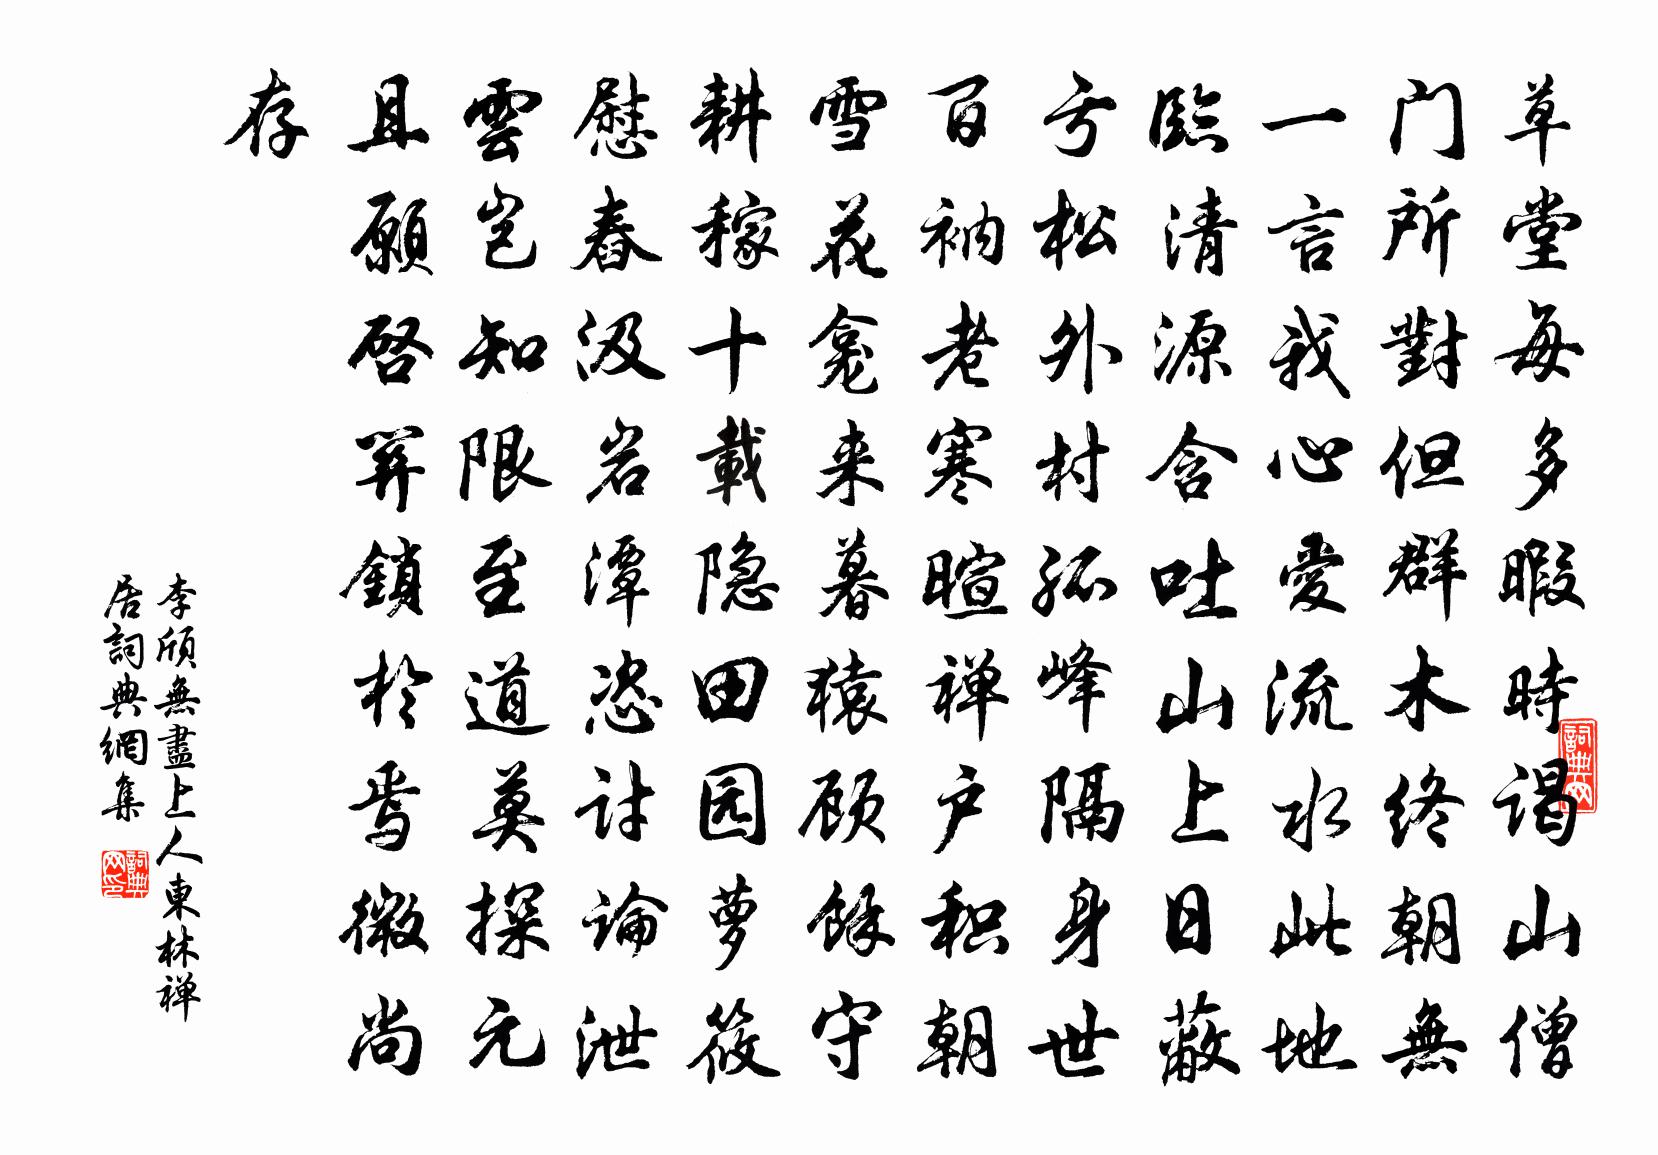 草堂每多暇時谒山僧
门所對但群木终朝無
一言我心愛流水此地
臨清源含吐山上日蔽
亏松外村孤峰隔身世
百衲老寒暄禅户积朝
雪花龛来暮猿顾馀守
耕稼十載隐田园萝筱
慰舂汲岩潭恣讨論泄
雲岂知限至道莫探元
且願启関鎖於焉微尚
存
李頎無盡上人東林禅
居詞典網集
詞典网
詞典网印